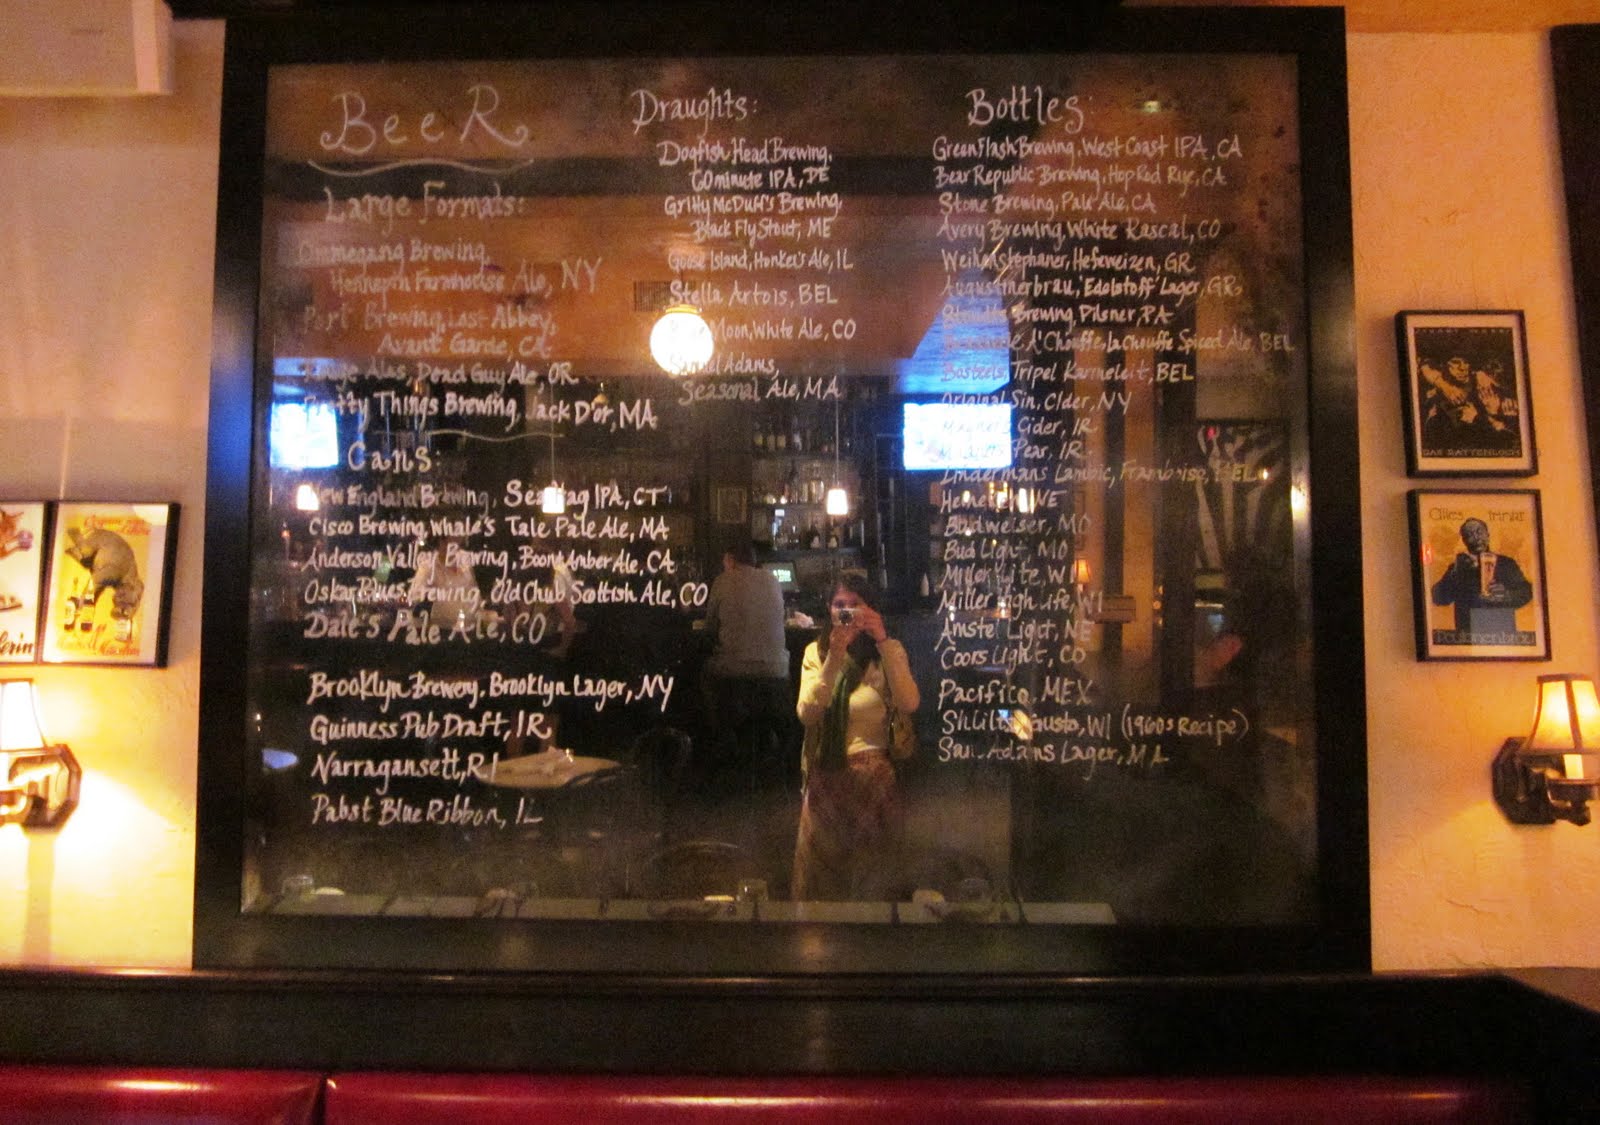 BeeR
Large Formats:
Ommegang Brewing,
Hennepin Farmhouse Ale, NY
Port Brewing, Lost Abbey,
Avant Garde, CA
Ales, Dead Guy Ale, OR
Pretty Things Brewing, Jack D'or, MA
Cans:
New England Brewing, Sea Hag IPA, CT
Cisco Brewing, Whale's Tale Pale Ale, MA
Anderson Valley Brewing, Boont Amber Ale, CA
Oskar Blues Brewing, Old Chub Scottish Ale, CO
Dale's Pale Ale, CO
Brooklyn Brewery, Brooklyn Lager, NY
Guinness Pub Draft, IR
Narragansett, RI
Pabst Blue Ribbon, IL
Draughts:
Dogfish Head Brewing,
60 minute IPA, DE
Gritty McDuff's Brewing,
Black Fly Stout, ME
Goose Island, Honker's Ale, IL
Stella Artois, BEL
Moon, White Ale, CO
Samuel Adams,
Seasonal Ale, MA
Bottles:
Green Flash Brewing, West Coast IPA, CA
Bear Republic Brewing, Hop Rod Rye, CA
Stone Brewing, Pale Ale, CA
Avery Brewing, White Rascal, CO
Weihenstephaner, Hefeweizen, GR
Augustinerbrau, 'Edelstoff' Lager, GR
Brewing, Pilsner, PA
A'Chouffe, La Chouffe Spiced Ale, BEL
Bosteels, Tripel Karmeleit, BEL
Original Sin, Cider, NY
Magner's Cider, IR
Magners Pear, IR
Lindermans Lambic, Framboise, BEL
Heineken, NE
Budweiser, MO
Bud Light, MO
Miller Lite, WI
Miller High Life, WI
Amstel Light, NE
Coors Light, CO
Pacifico, MEX
Shlitz Gusto, WI (1960s Recipe)
Sam Adams Lager, MA
DAS RATTENLOCH